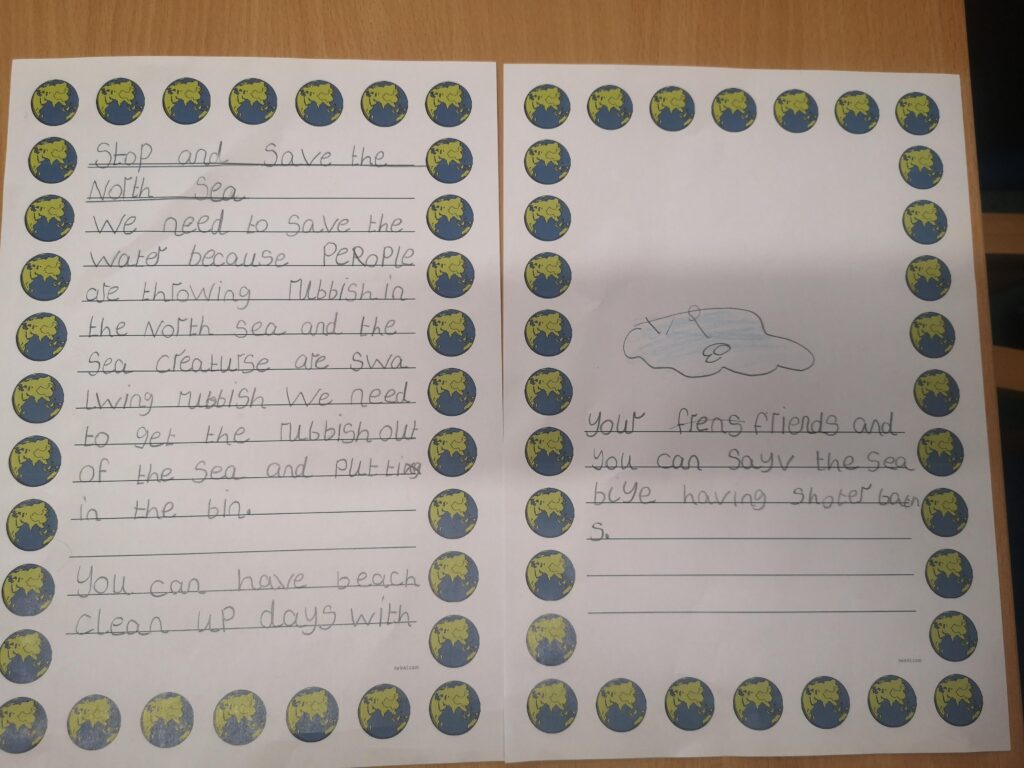 Stop and save the
North Sea
We need to save the
water because PeRoPle
are throwing rubbish in
the North sea and the
sea creaturse are swa
lwing rubbish We need
to get the rubbish out
of the sea and put
in the bin.
You can have beach
clean up days with
twinkl.com
your frens friends and
you can sayv the sea
biye having shoter
s.
twinkl.com